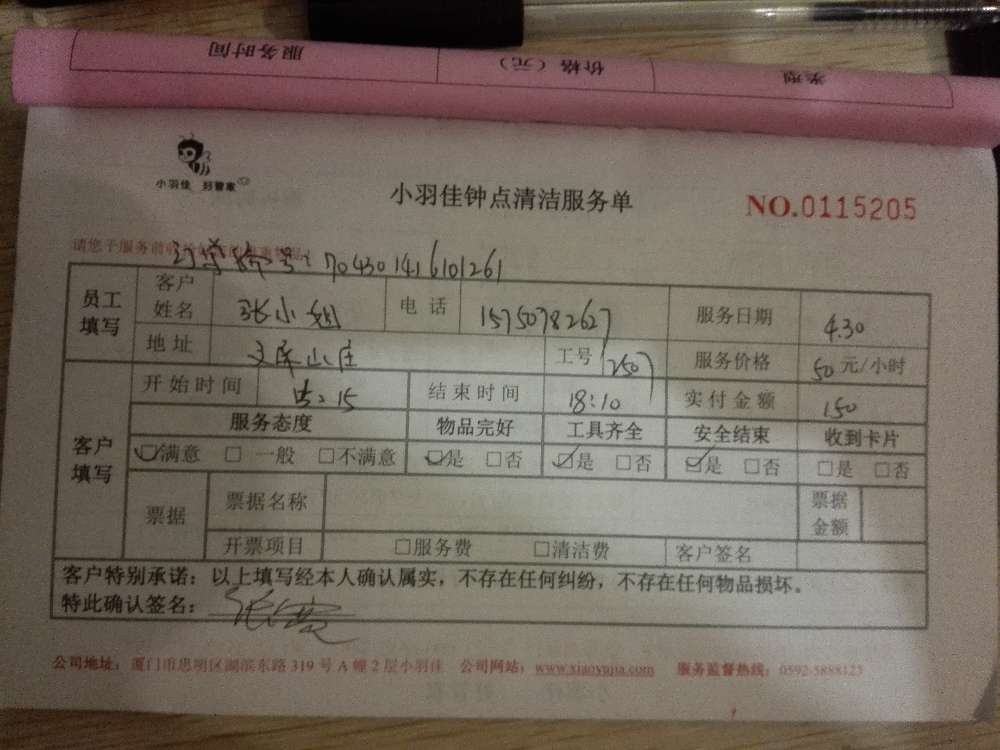 服务时间 价格（元） 类型
小羽佳 好管家
小羽佳钟点清洁服务单
NO.0115205
请您于服务前
订单编号：704301416101261
员工填写 客户姓名 张小姐 电话 15750782627 服务日期 4.30
地址 文屏山庄 工号 1250 服务价格 50元/小时
客户填写 开始时间 15:15 结束时间 18:10 实付金额 150
服务态度 物品完好 工具齐全 安全结束 收到卡片
☑满意 □一般 □不满意 ☑是 □否 ☑是 □否 ☑是 □否 □是 □否
票据 票据名称 票据金额
开票项目 □服务费 □清洁费 客户签名
客户特别承诺：以上填写经本人确认属实，不存在任何纠纷，不存在任何物品损坏。
特此确认签名：张
公司地址：厦门市思明区湖滨东路319号A幢2层小羽佳 公司网站：www.xiaoyujia.com 服务监督热线：0592-5888123